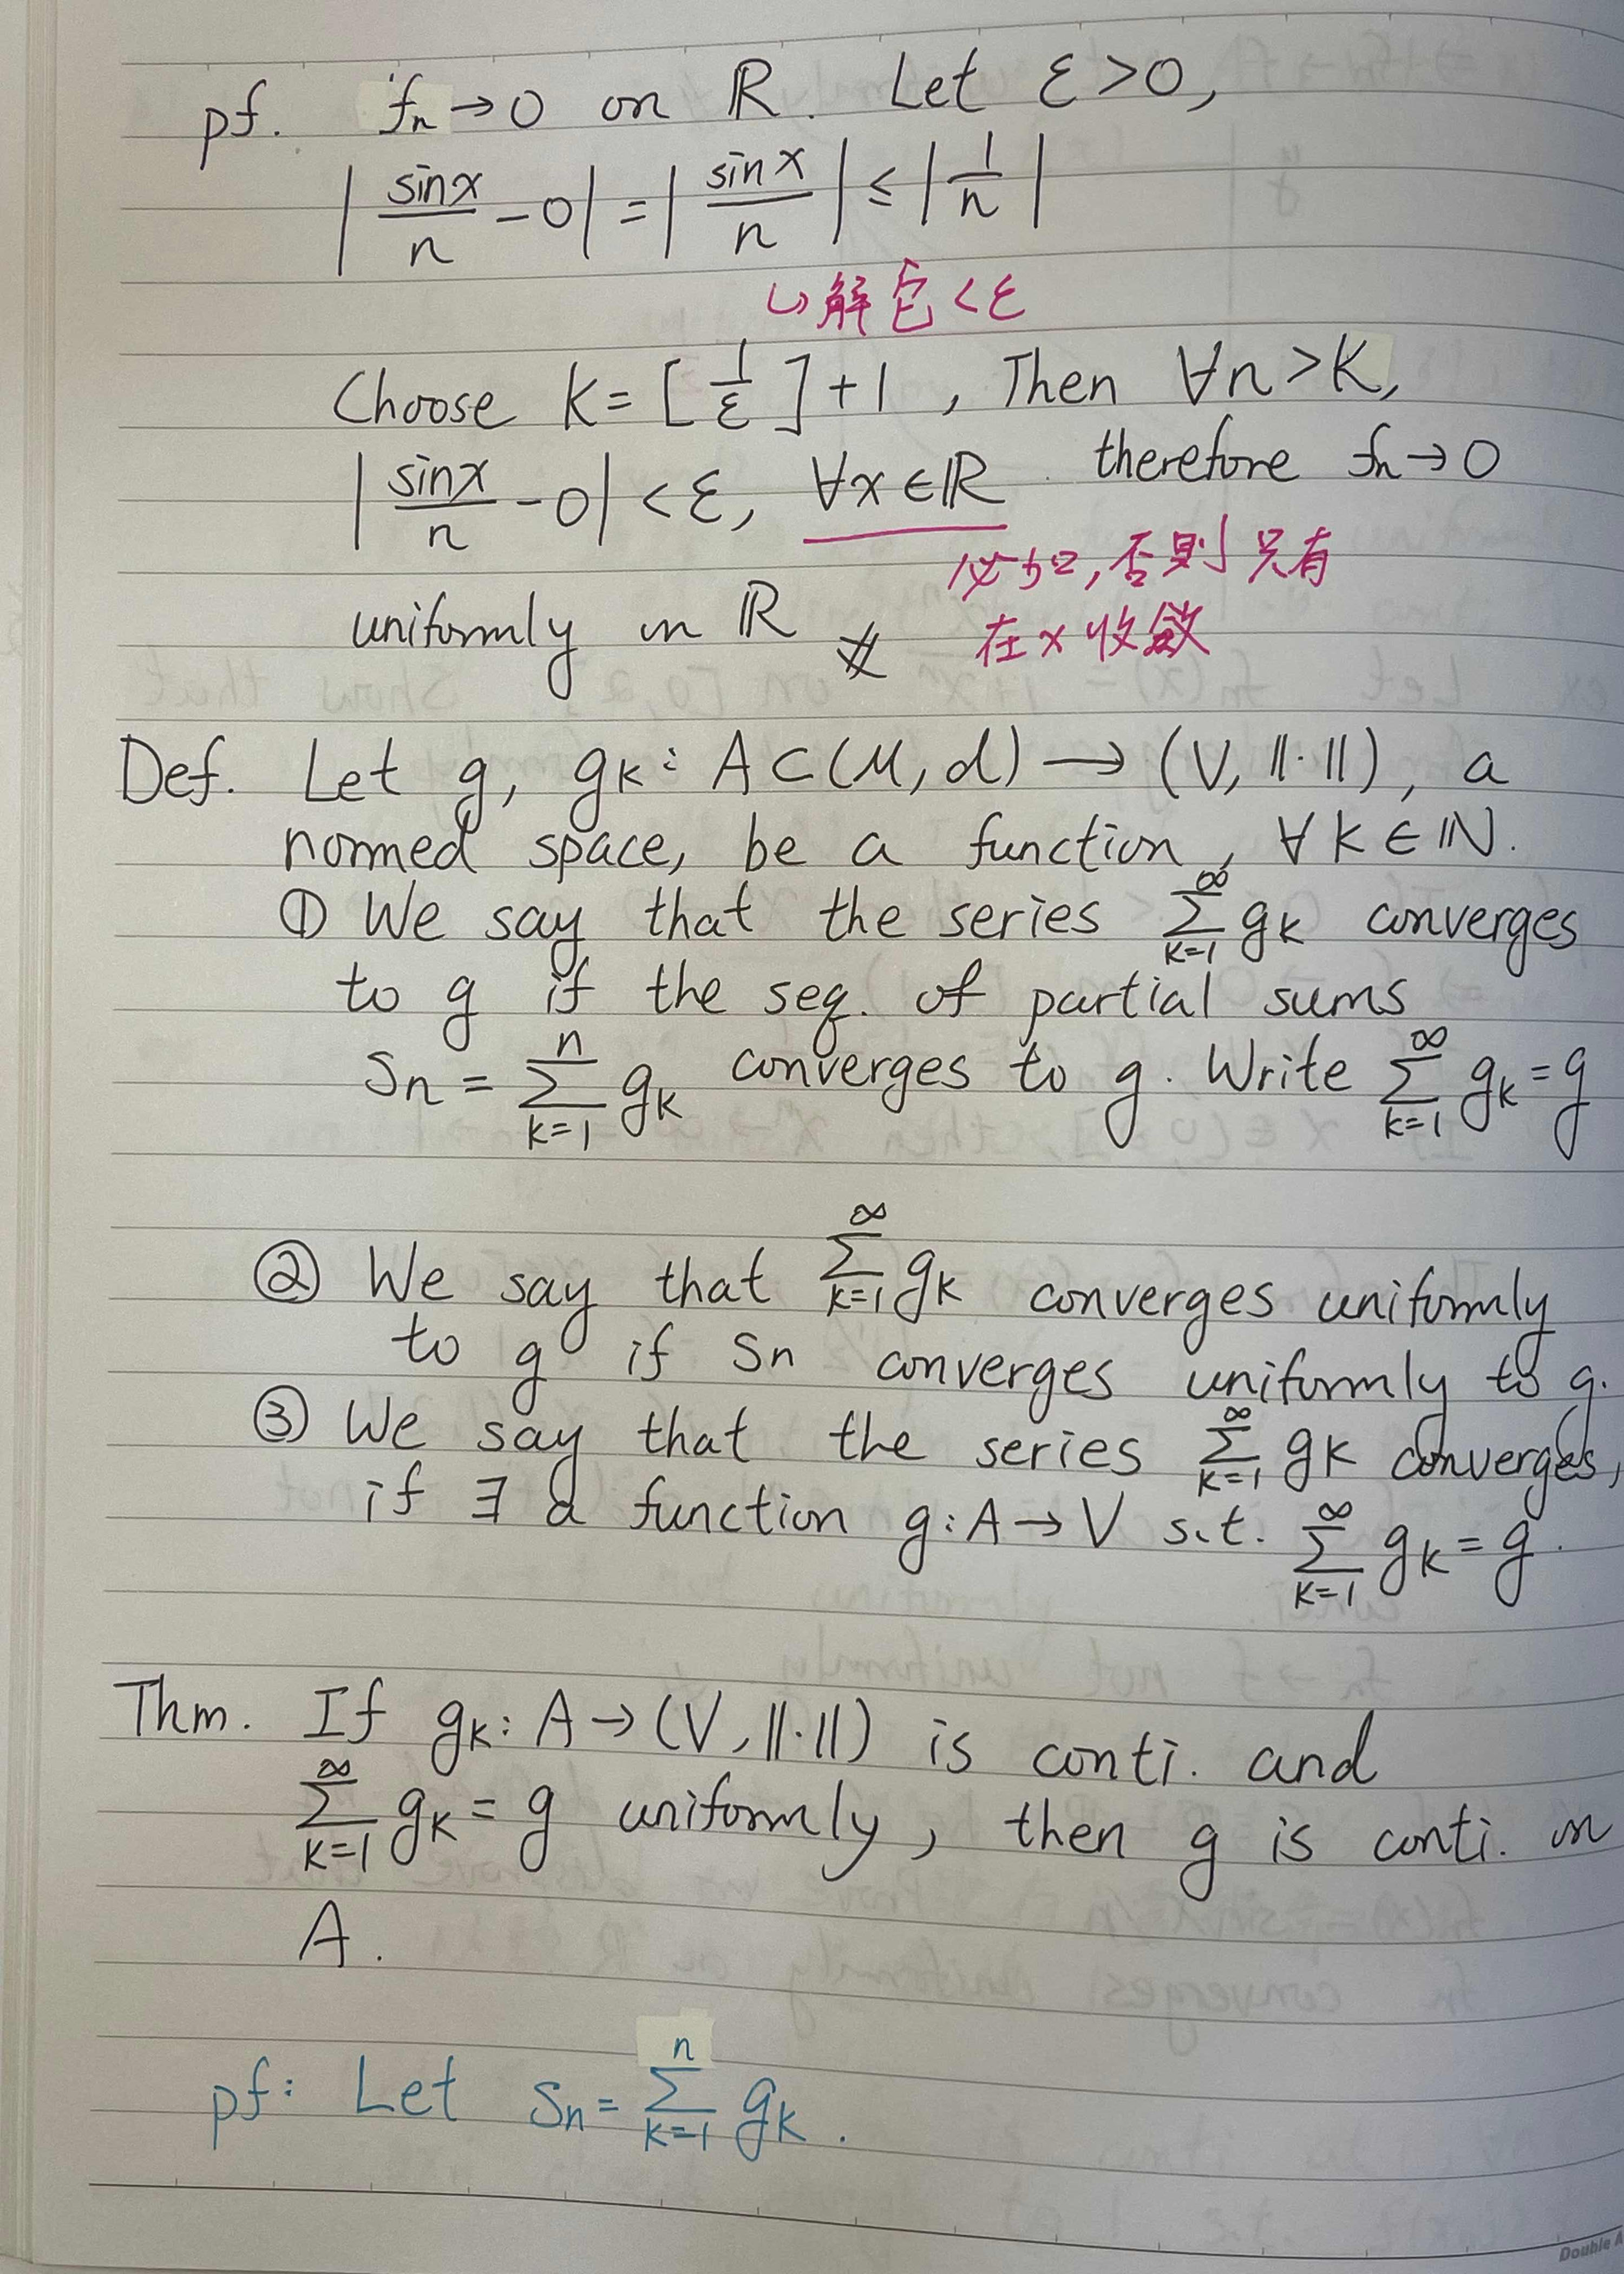 pf. fn → 0 on ℝ. Let ε > 0,
| sinx/n - 0 | = | sinx/n | ≤ | 1/n |
↪ 解它 < ε
Choose K = [ 1/ε ] + 1 , Then ∀n > K,
| sinx/n - 0 | < ε, ∀x ∈ ℝ . therefore fn → 0
必加, 否則只有
uniformly on ℝ #
在 x 收斂
Def. Let g, gk : A ⊂ (M, d) → (V, ‖·‖), a
normed space, be a function, ∀ k ∈ ℕ.
① We say that the series ∑_{k=1}^{∞} gk converges
to g if the seq. of partial sums
Sn = ∑_{k=1}^{n} gk converges to g. Write ∑_{k=1}^{∞} gk = g
② We say that ∑_{k=1}^{∞} gk converges uniformly
to g if Sn converges uniformly to g.
③ We say that the series ∑_{k=1}^{∞} gk converges,
if ∃ a function g : A → V s.t. ∑_{k=1}^{∞} gk = g.
Thm. If gk : A → (V, ‖·‖) is conti. and
∑_{k=1}^{∞} gk = g uniformly, then g is conti. on
A.
pf: Let Sn = ∑_{k=1}^{n} gk.
Double A